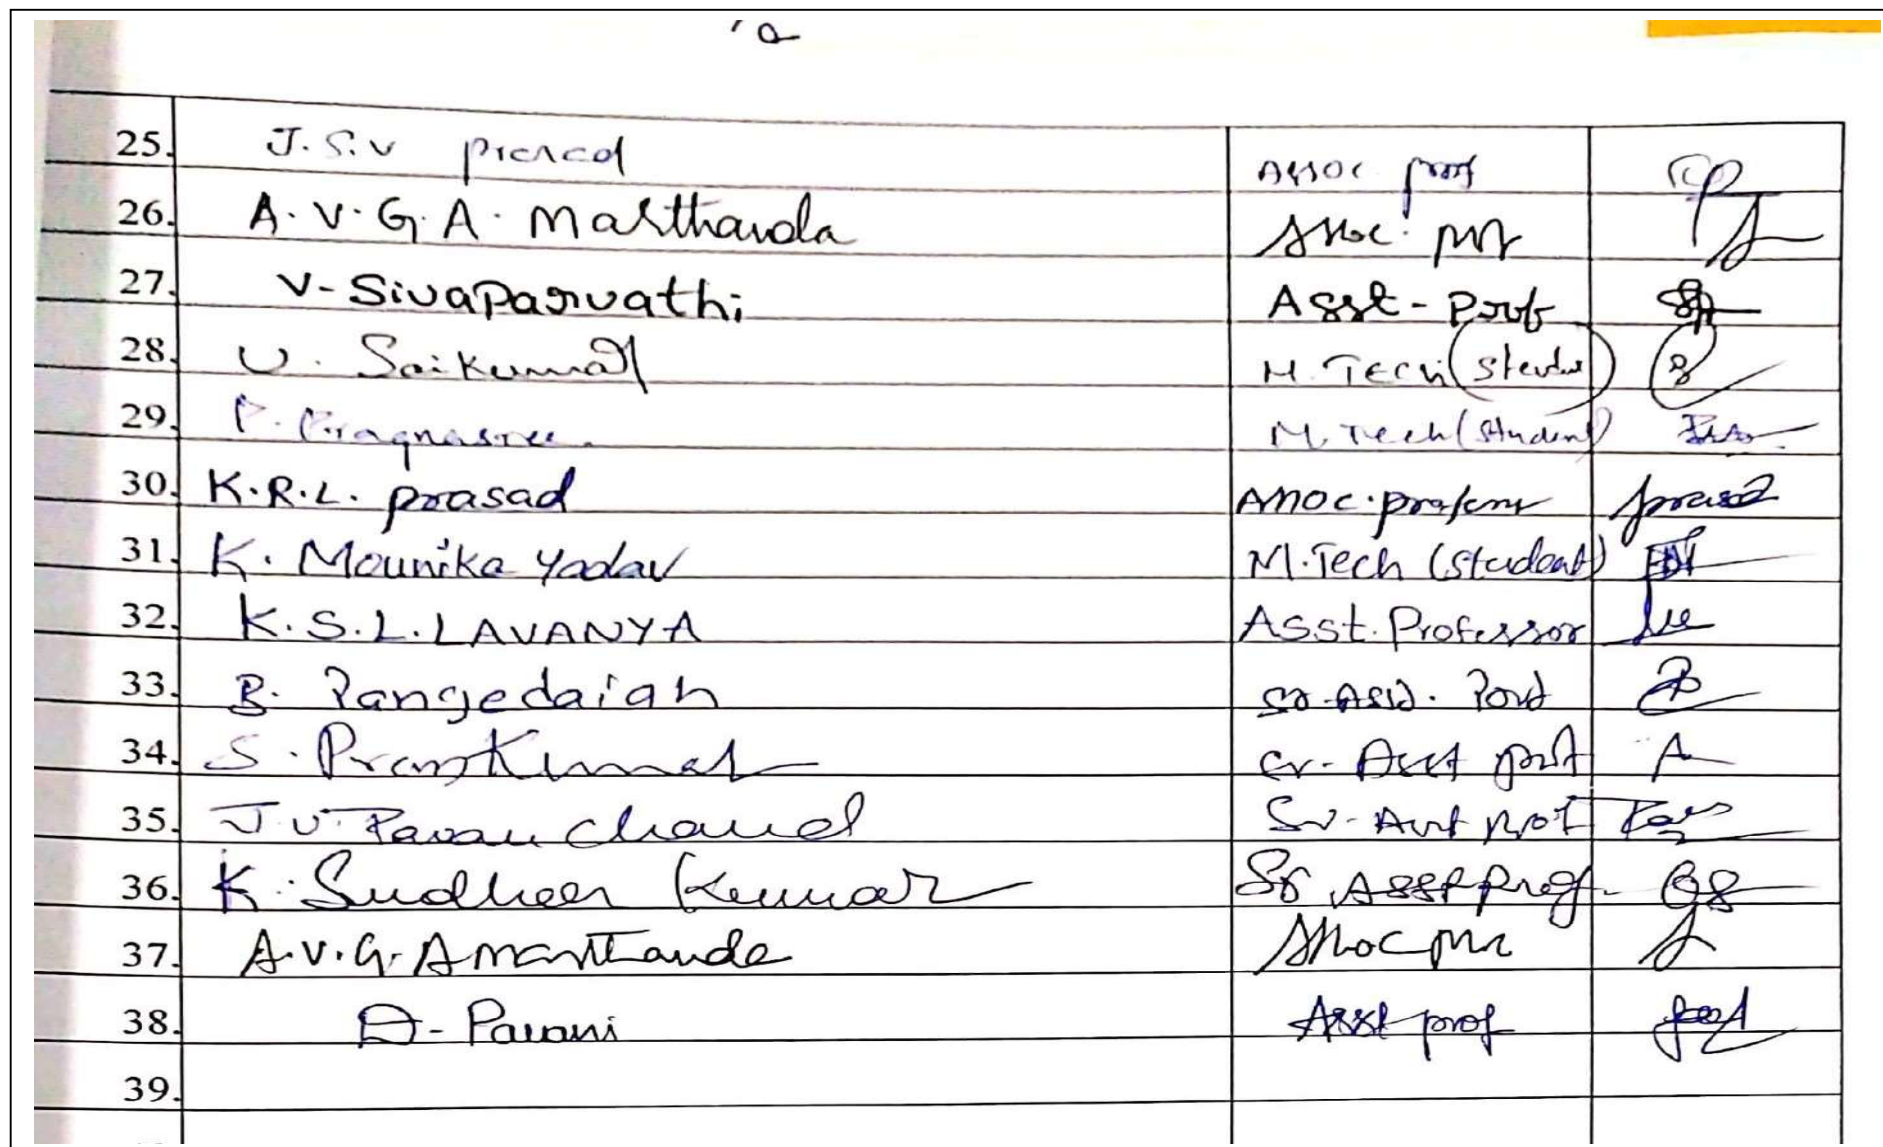 25. J.S.V Prasad Assoc. prof
26. A.V.G.A. Marthanda Assoc. prof
27. V-SivaParvathi Asst-Prof
28. U. Saikumar M.Tech (Student)
29. P. Pragnasree. M.Tech (Student)
30. K.R.L. prasad Assoc. professor prasad
31. K. Mounika Yadav M.Tech (Student)
32. K.S.L. LAVANYA Asst. Professor
33. B. Rangedaiah Sr. Asst. Prof
34. S. Prem Kumar Sr. Asst prof
35. J.V. Pavan Chand Sr. Asst prof
36. K. Sudheer Kumar Sr Asst prof
37. A.V.G. A marthanda Assoc prof
38. D- Pavani Asst prof
39.